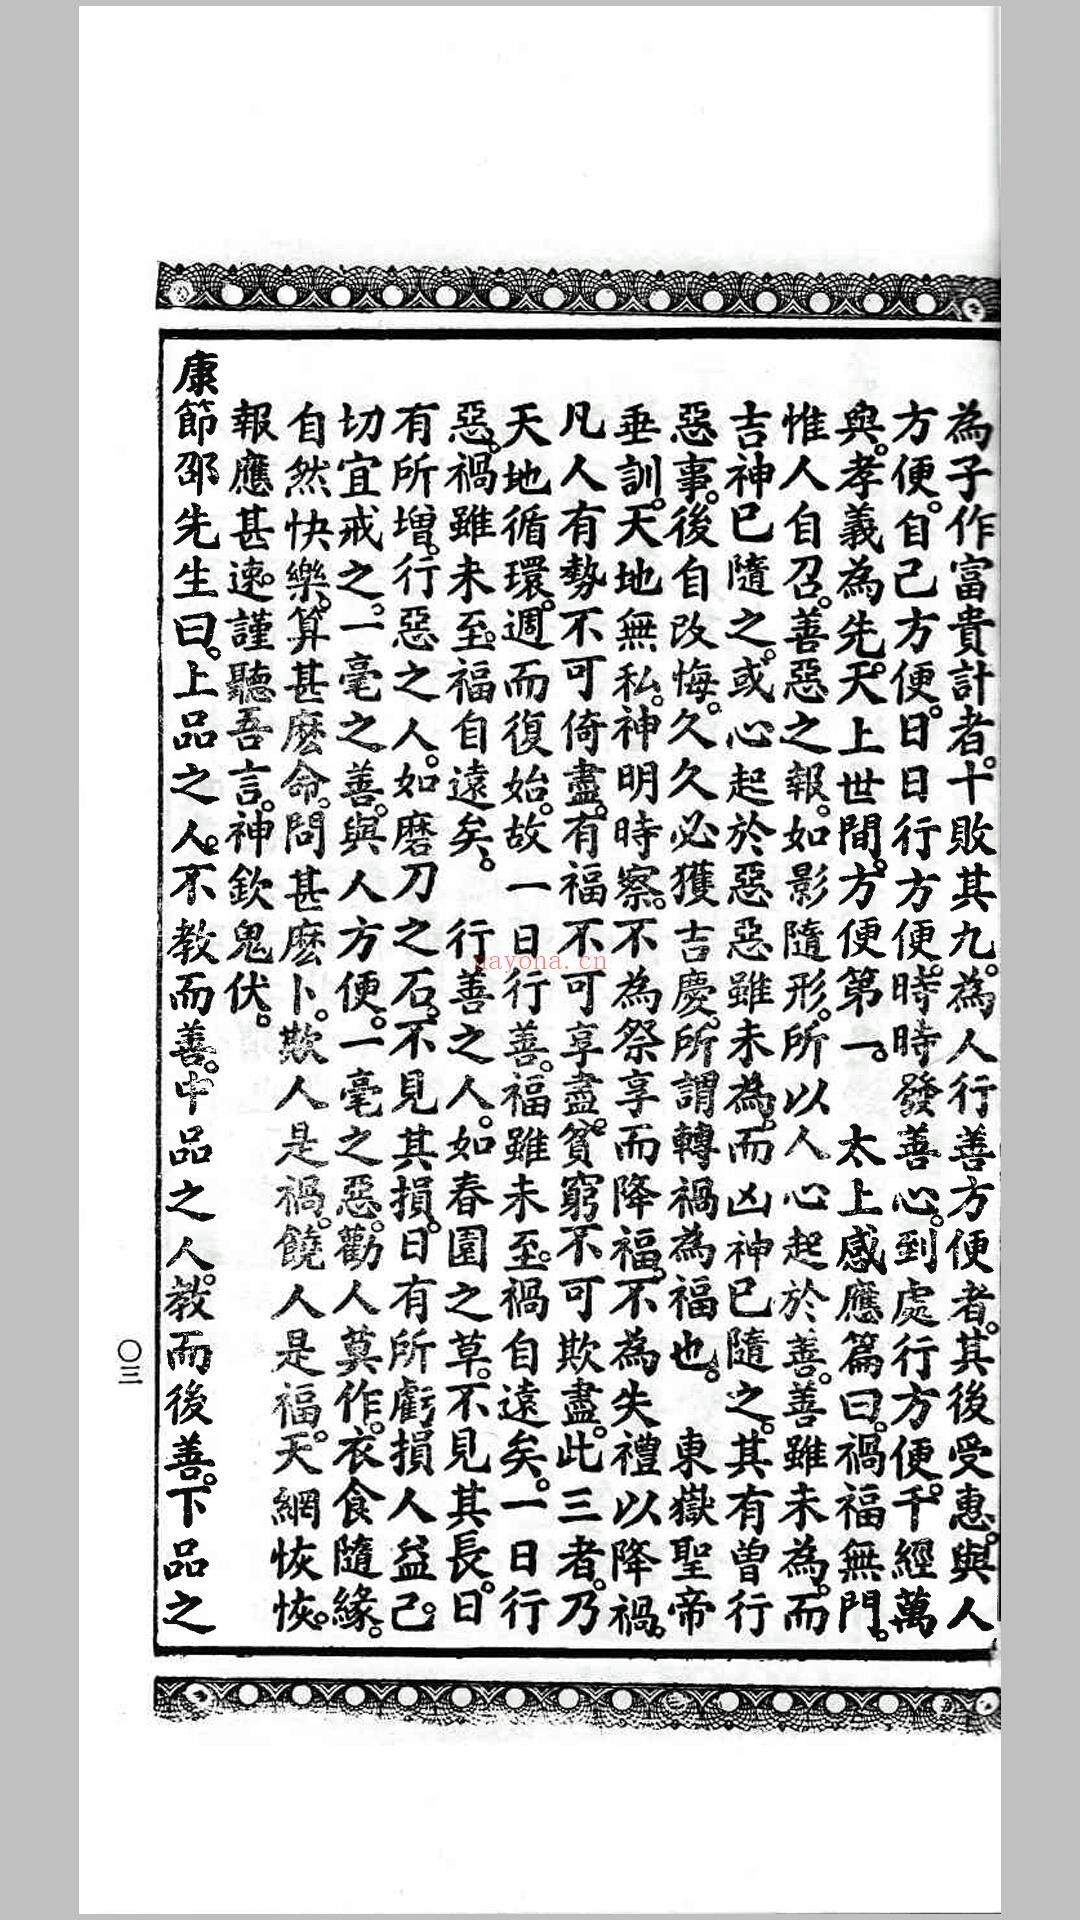 為子作富貴計者。十敗其九。為人行善方便者。其後受惠。與人
方便。自己方便。日日行方便。時時發善心。到處行方便。千經萬
典。孝義為先。天上世間。方便第一。　太上感應篇曰。禍福無門。
惟人自召。善惡之報。如影隨形。所以人心起於善。善雖未為。而
吉神已隨之。或心起於惡惡雖未為。而凶神已隨之。其有曾行
惡事。後自改悔。久久必獲吉慶。所謂轉禍為福也。　東嶽聖帝
垂訓。天地無私。神明時察。不為祭享而降福。不為失禮以降禍。
凡人有勢不可倚盡。有福不可享盡。貧窮不可欺盡。此三者。乃
天地循環。週而復始。故一日行善。福雖未至。禍自遠矣。一日行
惡。禍雖未至。福自遠矣。　行善之人。如春園之草。不見其長。日
有所增。行惡之人。如磨刀之石。不見其損。日有所虧損人益己。
切宜戒之。一毫之善。與人方便。一毫之惡。勸人莫作。衣食隨緣。
自然快樂。算甚麼命。問甚麼卜。欺人是禍。饒人是福。天網恢恢。
報應甚速。謹聽吾言。神欽鬼伏。
康節邵先生曰。上品之人。不教而善。中品之人。教而後善。下品之
〇三
nayona.cn